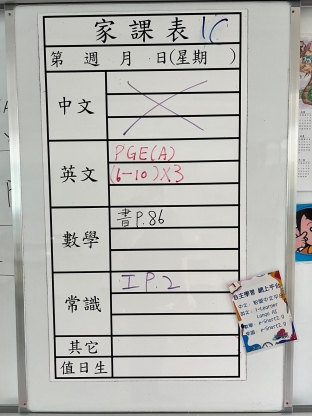 家課表 1C
第 週 月 日(星期 )
中文
英文
PGE(A)
(6-10)×3
數學
書P.86
常識
工P.2
其它
值日生
自主學習 網上平台